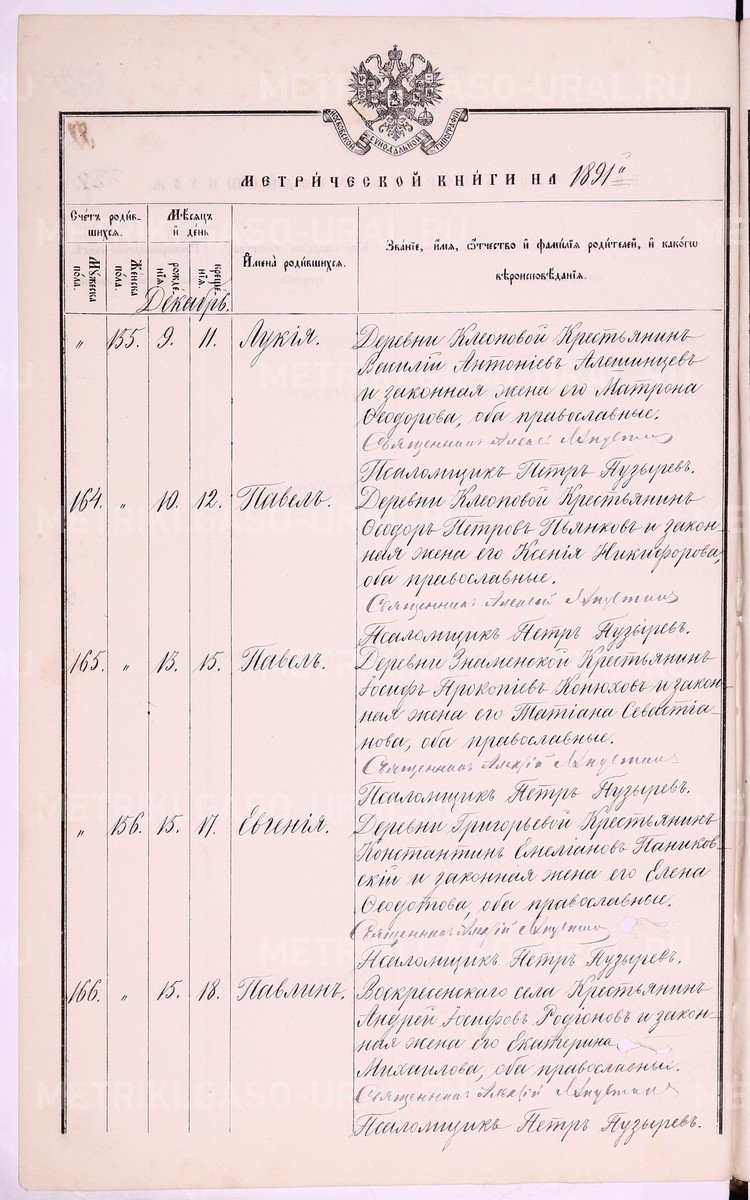 МОСКОВСКОЙ СѴНОДАЛЬНОЙ ТИПОГРАФІИ
МЕТРИ́ЧЕСКОЙ КНИ́ГИ НА 1891й
Сче́тъ роди́в-
шихся.
Мѣ́сяцъ
и҆ де́нь
Му́жеска
по́ла.
Же́нска
по́ла.
рожде́-
нїѧ.
креще́-
нїѧ.
И҆мена̀ роди́вшихся.
Зва́нїе, и҆́мѧ, ѻ҆́тчество и҆ фами́лїѧ роди́телей, и҆ како́гѡ
вѣроисповѣ́данїѧ.
Декабрь.
" 155. 9. 11. Лукія. Деревни Клеоповой Крестьянинъ
Василій Антоніевъ Алешинцевъ
и законная жена его Матрона
Ѳеодорова, оба православные.
Священникъ Алексѣй
Псаломщикъ Петръ Пузыревъ.
164. " 10. 12. Павелъ. Деревни Клеоповой Крестьянинъ
Ѳеодоръ Петровъ Пьянковъ и закон-
ная жена его Ксенія Никифорова,
оба православные.
Священникъ Алексій
Псаломщикъ Петръ Пузыревъ.
165. " 13. 15. Павелъ. Деревни Знаменской Крестьянинъ
Іосифъ Прокопіевъ Конюховъ и закон-
ная жена его Татіана Севастіа-
нова, оба православные.
Священникъ Алексій
Псаломщикъ Петръ Пузыревъ.
" 156. 15. 17. Евгенія. Деревни Григорьевой Крестьянинъ
Константинъ Емеліановъ Паников-
скій и законная жена его Елена
Ѳеодотова, оба православные.
Священникъ Алексій
Псаломщикъ Петръ Пузыревъ.
166. " 15. 18. Павлинъ. Воскресенскаго села Крестьянинъ
Андрей Іосифовъ Родіоновъ и закон-
ная жена его Екатерина
Михаилова, оба православные.
Священникъ Алексій
Псаломщикъ Петръ Пузыревъ.
METRIKI.GASO-URAL.RU